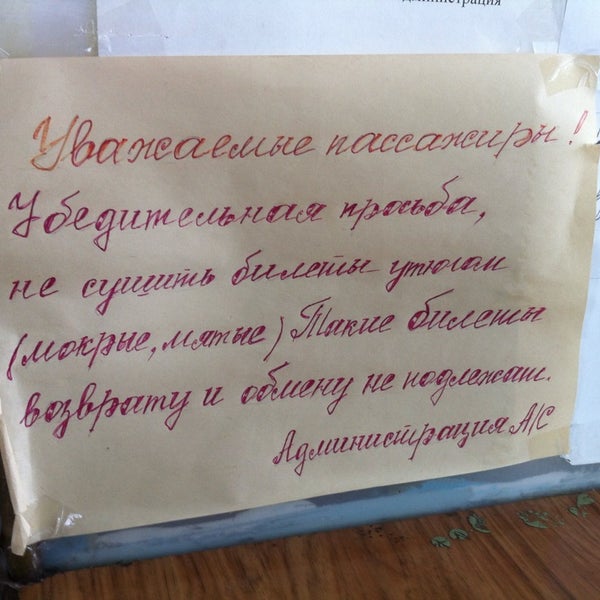 администрация
Уважаемые пассажиры!
Убедительная просьба,
не сушить билеты утюгом
(мокрые, мятые) Такие билеты
возврату и обмену не подлежат.
Администрация А/С